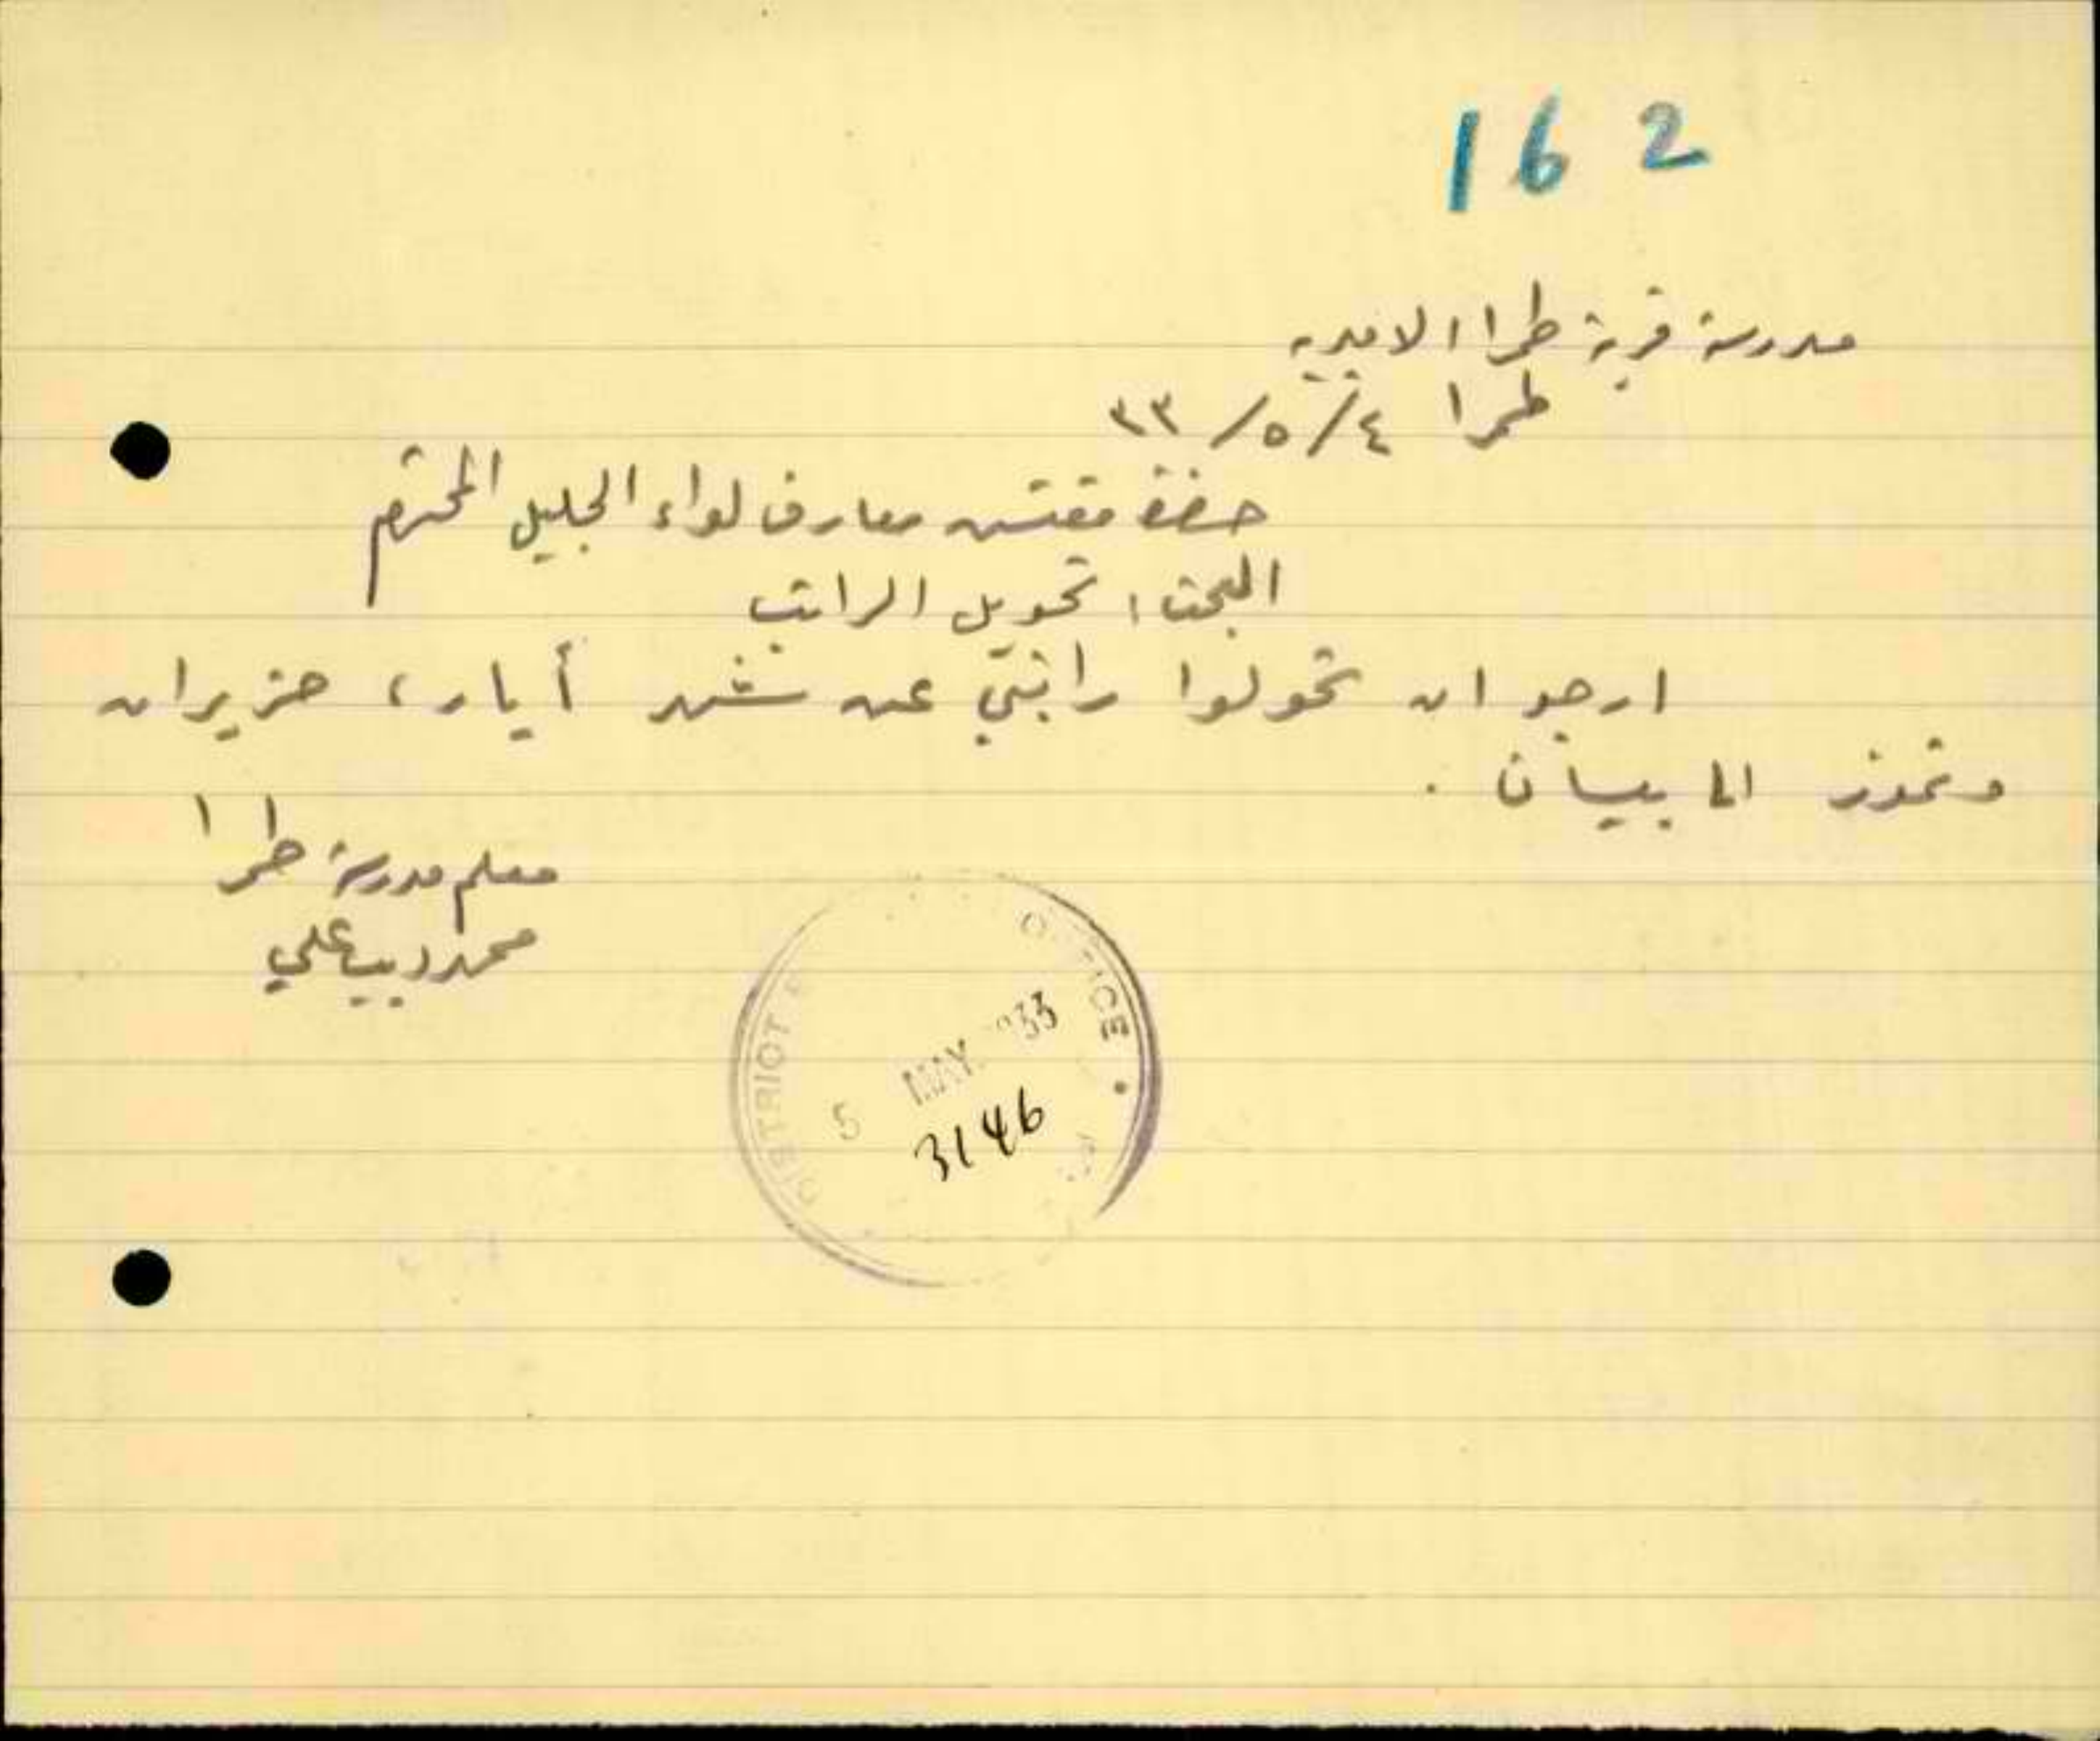 162
مدرسة قرية طمرا الاميريه
طمرا ٤/٥/٣٣
حضرة مفتش معارف لواء الجليل المحترم
البحث: تحويل الراتب
ارجو ان تحولوا راتبي عن شهر أيار، حزيران
وتموز الى بيسان.
معلم مدرسة طمرا
محمد ديب علي
DISTRICT OFFICE
5 MAY 933
3146